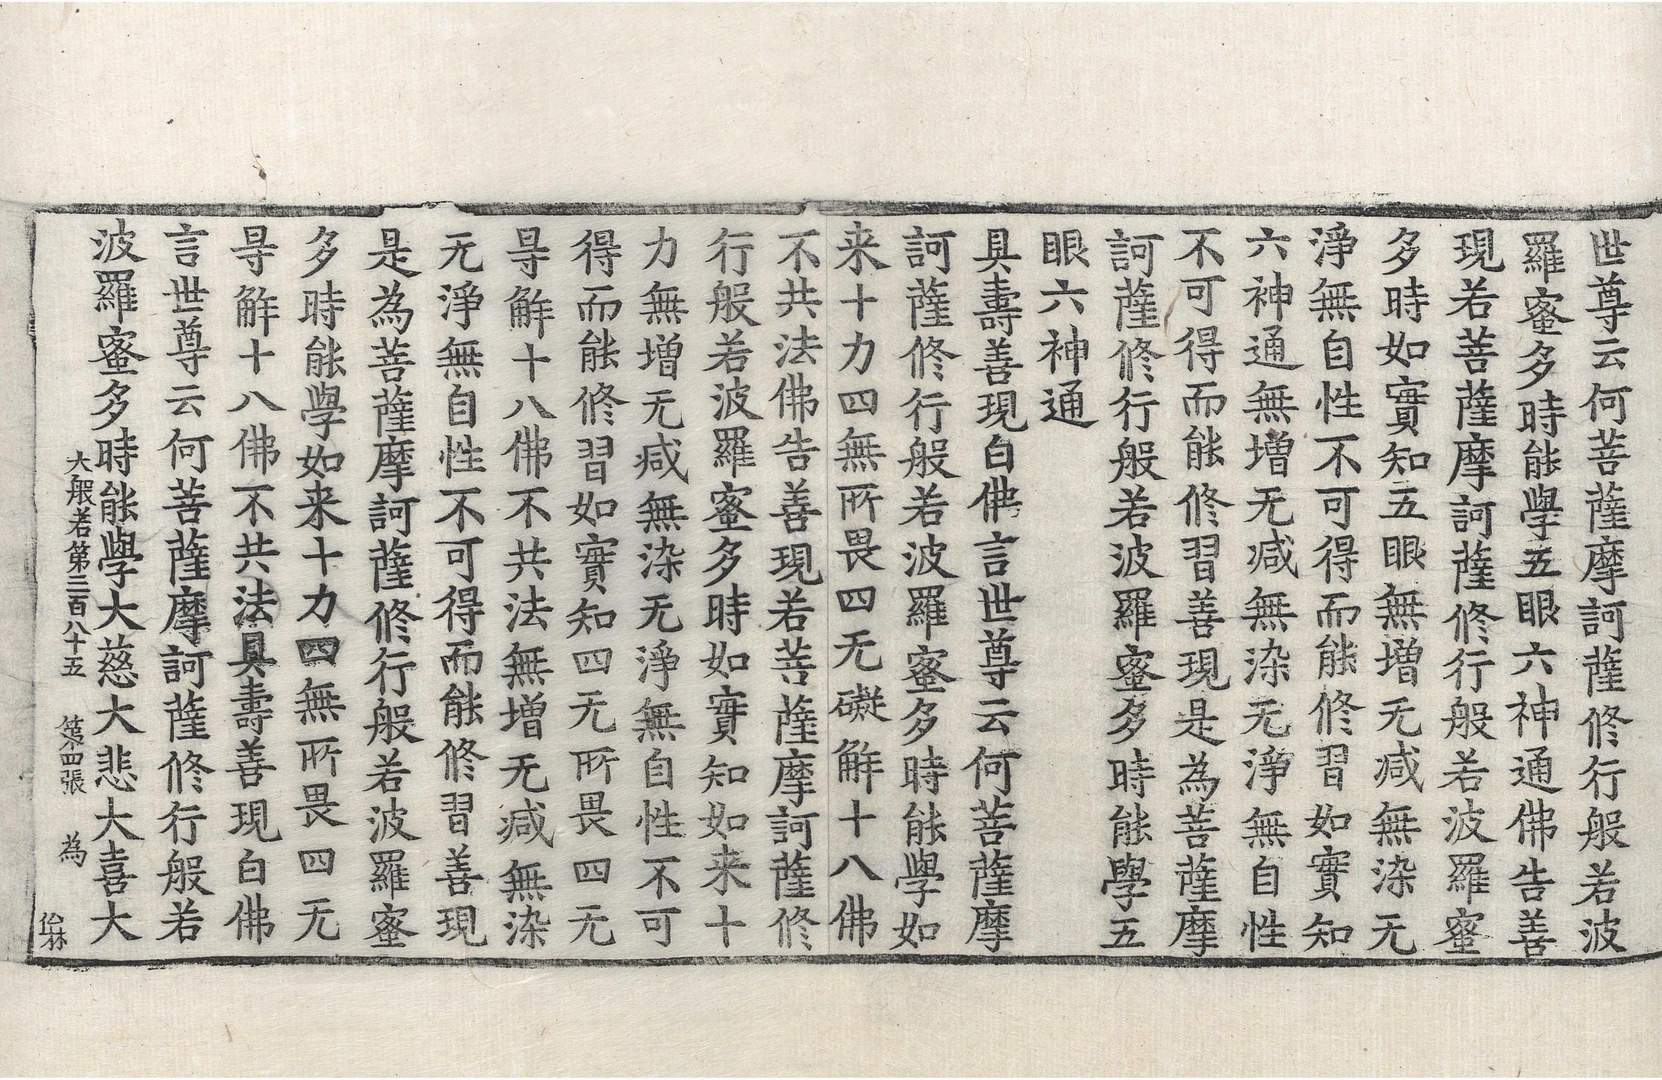 世尊云何菩薩摩訶薩修行般若波
羅蜜多時能學五眼六神通佛告善
現若菩薩摩訶薩修行般若波羅蜜
多時如實知五眼無增无減無染无
淨無自性不可得而能修習如實知
六神通無增无減無染无淨無自性
不可得而能修習善現是為菩薩摩
訶薩修行般若波羅蜜多時能學五
眼六神通
具壽善現白佛言世尊云何菩薩摩
訶薩修行般若波羅蜜多時能學如
来十力四無所畏四无礙解十八佛
不共法佛告善現若菩薩摩訶薩修
行般若波羅蜜多時如實知如来十
力無增无減無染无淨無自性不可
得而能修習如實知四无所畏四无
㝵解十八佛不共法無增无減無染
无淨無自性不可得而能修習善現
是為菩薩摩訶薩修行般若波羅蜜
多時能學如来十力四無所畏四无
㝵解十八佛不共法具壽善現白佛
言世尊云何菩薩摩訶薩修行般若
波羅蜜多時能學大慈大悲大喜大
大般若第三百八十五 第四張 為